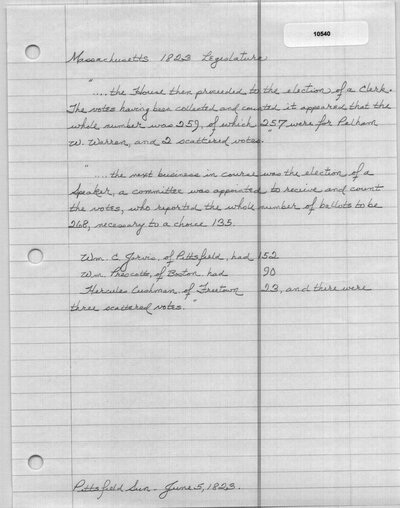 10540
Massachusetts 1823 Legislature
"....the House then proceeded to the election of a Clerk.
The votes having been collected and counted it appeared that the
whole number was 259, of which 257 were for Pelham
W. Warren, and 2 scattered votes."
"....the next business in course was the election of a
Speaker, a committee was appointed to receive and count
the votes, who reported the whole number of ballots to be
268, necessary to a choice 135.
Wm. C. Jarvis, of Pittsfield, had 152
Wm. Prescott, of Boston, had 90
Hercules Cushman, of Freetown 23, and there were
three scattered votes."
Pittsfield Sun - June 5, 1823.